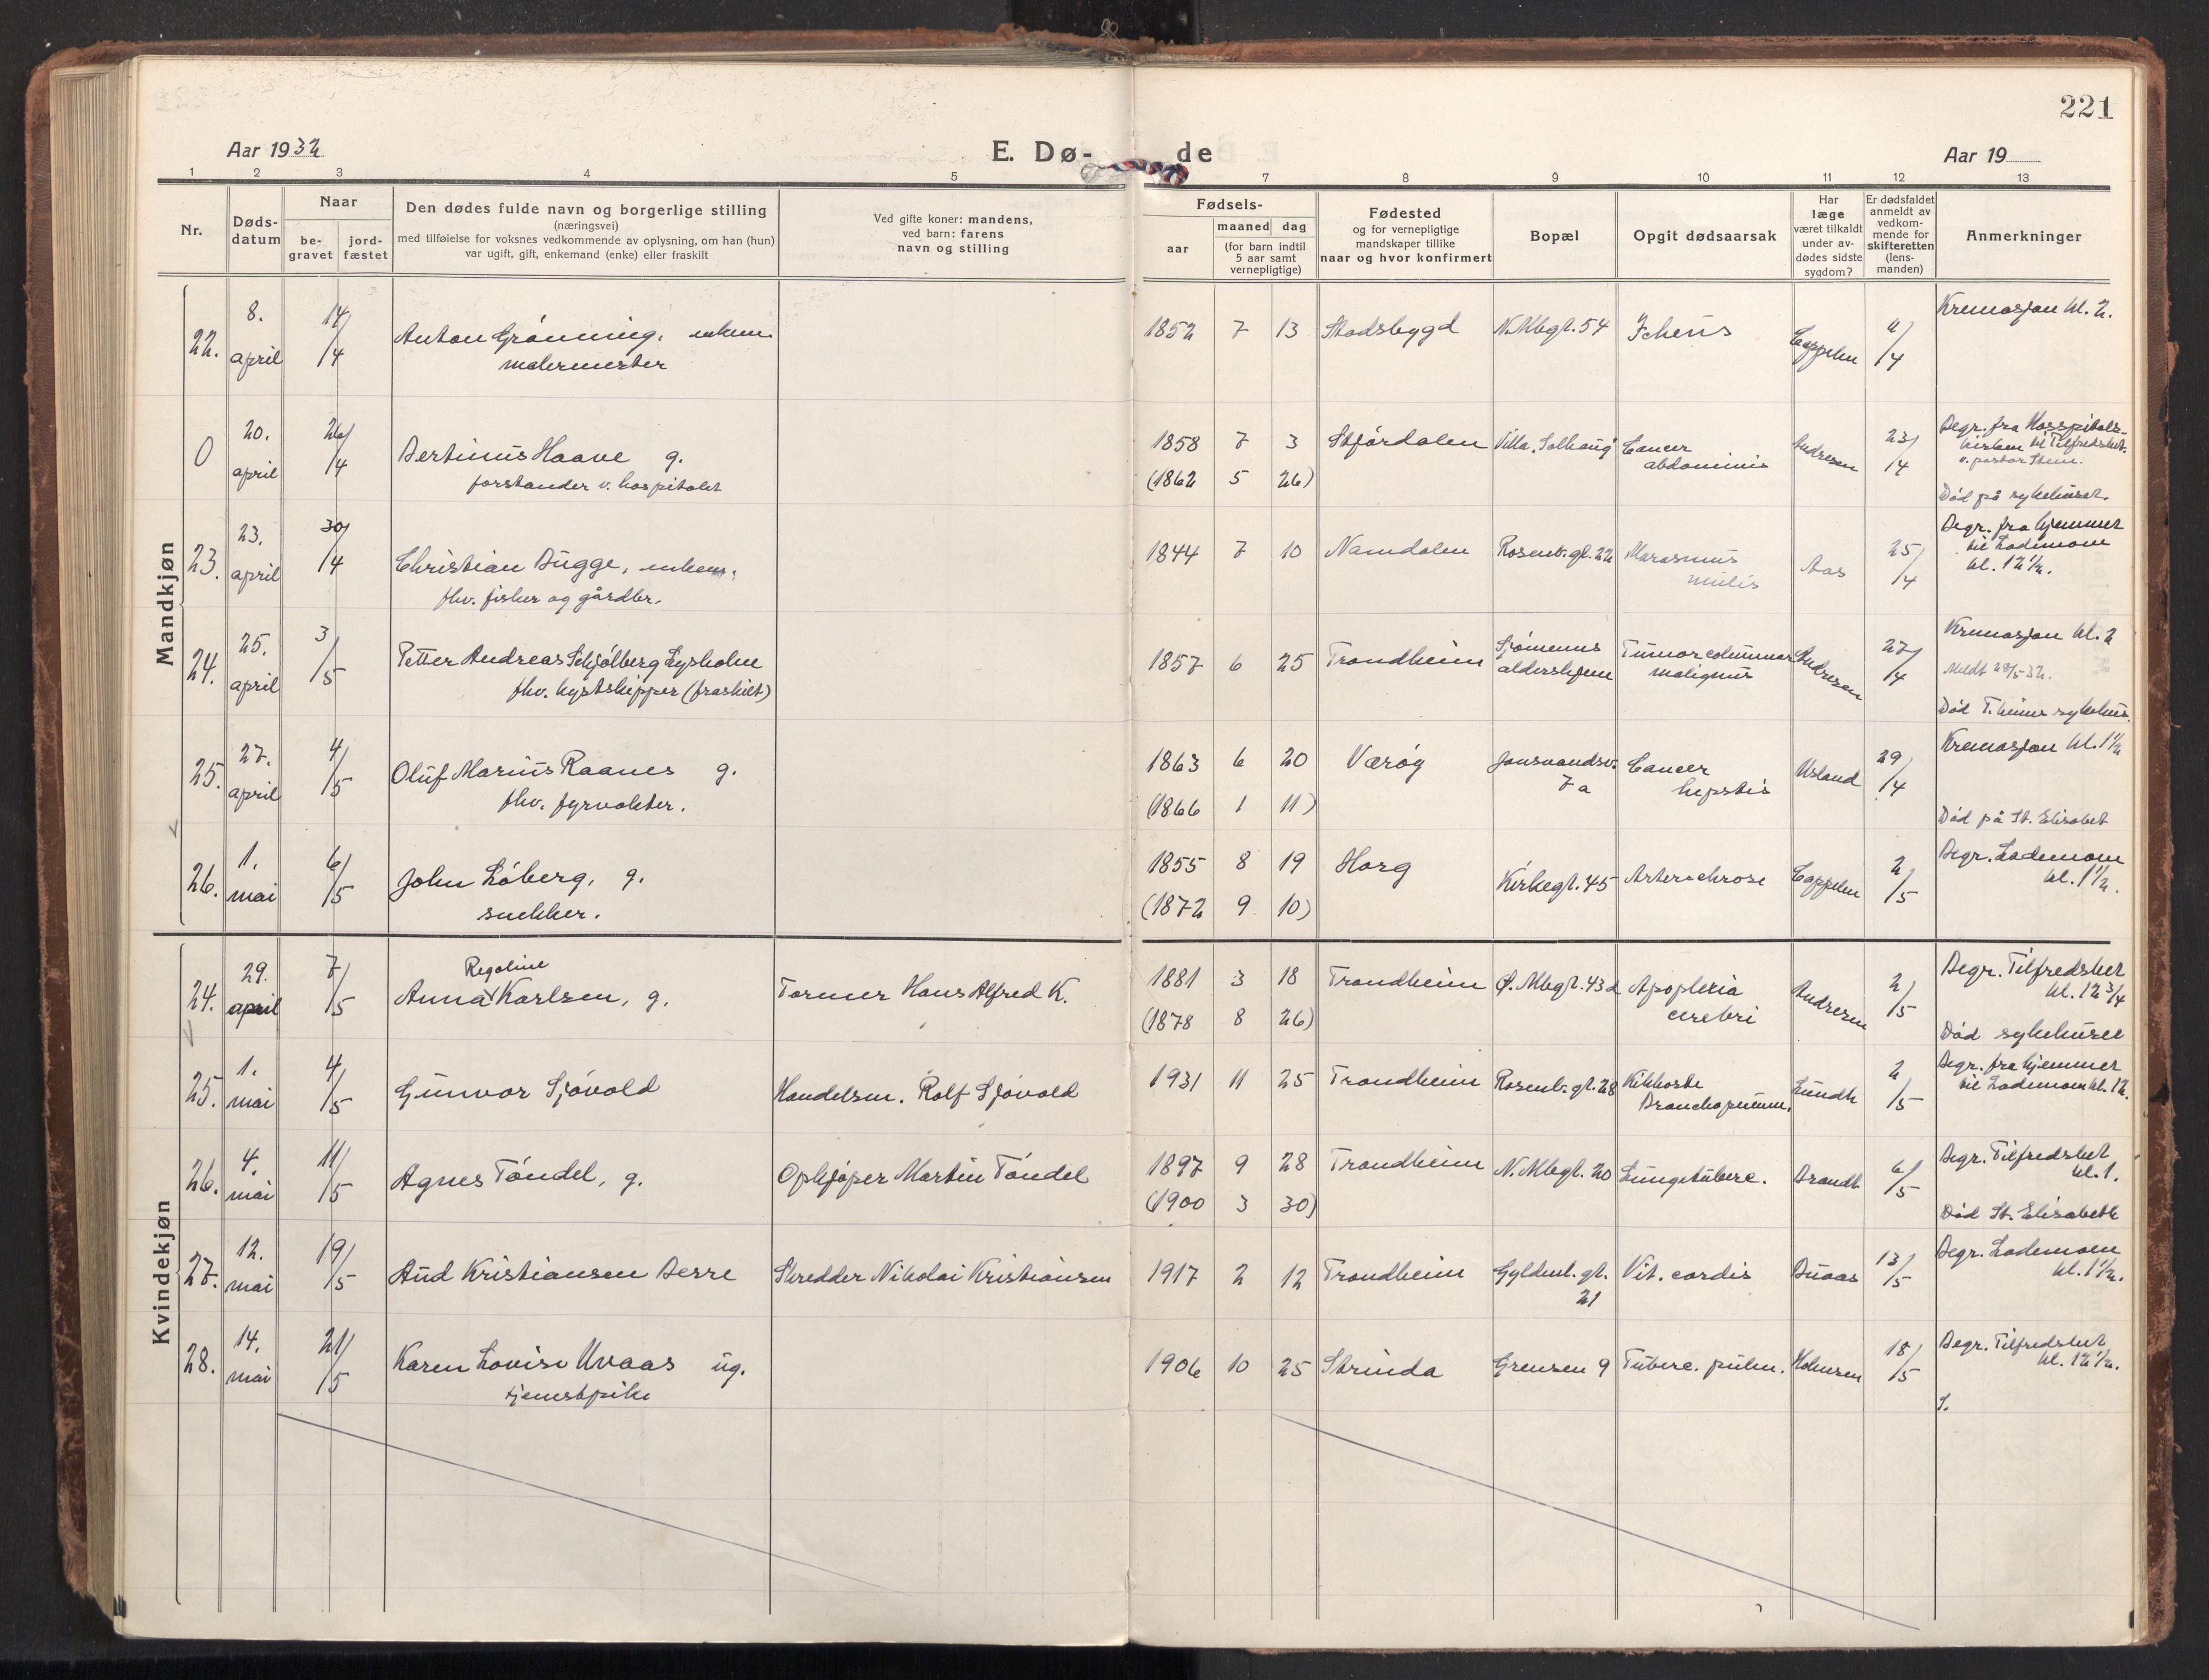 221
Aar 1932
E. Dø-
de
Aar 19
1 2 3 4 5 7 8 9 10 11 12 13
Nr.
Døds-
datum
Naar
be-
gravet
jord-
fæstet
Den dødes fulde navn og borgerlige stilling
(næringsvei)
med tilføielse for voksnes vedkommende av oplysning, om han (hun)
var ugift, gift, enkemand (enke) eller fraskilt
Ved gifte koner: mandens,
ved barn: farens
navn og stilling
Fødsels-
aar
maaned dag
(for barn indtil
5 aar samt
vernepligtige)
Fødested
og for vernepligtige
mandskaper tillike
naar og hvor konfirmert
Bopæl
Opgit dødsaarsak
Har
læge
været tilkaldt
under av-
dødes sidste
sygdom?
Er dødsfaldet
anmeldt av
vedkom-
mende for
skifteretten
(lens-
manden)
Anmerkninger
Mandkjøn
22. 8. april 14/4 Anton Grønning, enkem.
malermester
1852 7 13 Stadsbygd N. Mbgt. 54 Icheus Cappelen 11/4 Kremasjon kl. 2.
0 20. april 26/4 Bertinius Haave g.
forstander v. hospitalet
1858 7 3 Stjørdalen Villa "Solhaug" Cancer
abdominis Andresen 23/4 Begr. fra Hospitals-
kirken til Tilfredshet
v. pastor Stene.
(1862 5 26)
Død på sykehuset.
23. 23. april 30/4 Christian Bugge, enkem.
fhv. fisker og gårdbr.
1844 7 10 Namdalen Rosenb. gt. 22 Marasmus
Aas 25/4 Begr. fra hjemmet
til Lademoen
kl. 12 1/2.
24. 25. april 3/5 Petter Andreas Schjølberg Lysholm
fhv. kystskipper (fraskilt)
1857 6 25 Trondheim Sjømenns
aldershjem Tumor columnar
malignus Andresen 27/4 Kremasjon kl. 2
Meldt 28/5-32.
Død T.heims sykehus.
25. 27. april 4/5 Oluf Marius Raanes g.
fhv. fyrvokter.
1863 6 20 Værøy Jonsvandsv.
7a Cancer
hepatis Usland 29/4 Kremasjon kl. 1 1/2
(1866 1 11)
Død på St. Elisabet
26. 1. mai 6/5 John Løberg, g.
snekker.
1855 8 19 Horg Kirkegt. 45 Artersclerose Cappelen 2/5 Begr. Lademoen
kl. 1 1/2.
(1872 9 10)
Kvindekjøn
24. 29. april 7/5 Regoline
Anna Karlsen, g.
Tormer Hans Alfred K.
1881 3 18 Trondheim Ø. Mbgt. 43d Apoplexia
cerebri Andresen 2/5 Begr. Tilfredshet
kl. 12 3/4
(1878 8 26)
Død sykehuset
25. 1. mai 4/5 Gunvor Sjøvold
Handelsm. Rolf Sjøvold
1931 11 25 Trondheim Rosenb. gt. 28 Kikhoste
Bronchopneum. Lundh 2/5 Begr. fra hjemmet
til Lademoen kl. 12.
26. 4. mai 11/5 Agnes Tøndel, g.
Opkjøper Martin Tøndel
1897 9 28 Trondheim N. Mbgt. 20 Lungetuberc. Brandt 6/5 Begr. Tilfredshet
kl. 1.
(1900 3 30)
Død St. Elisabeth
27. 12. mai 19/5 Aud Kristiansen Berre
Skredder Nikolai Kristiansen
1917 2 12 Trondheim Gyldenl. gt.
21 Vit. cordis Buaas 13/5 Begr. Lademoen
kl. 1 1/2.
28. 14. mai 21/5 Karen Lovise Uvaas ug.
tjenestpike
1906 10 25 Strinda Grensen 9 Tuberc. pulm. Holmsen 18/5 Begr. Tilfredshet
kl. 12 1/2.
S.